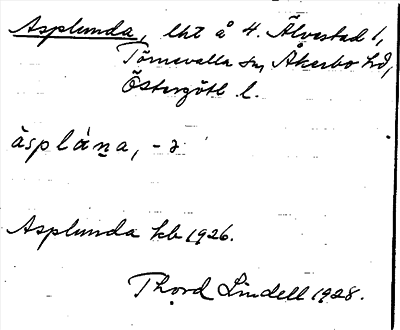 Asplunda, lht å 4. Älvestad 1,
Törnevalla sn, Åkerbo hd,
Östergötl l.
àsplána, -ə
Asplunda kb 1926.
Thord Lindell 1928.